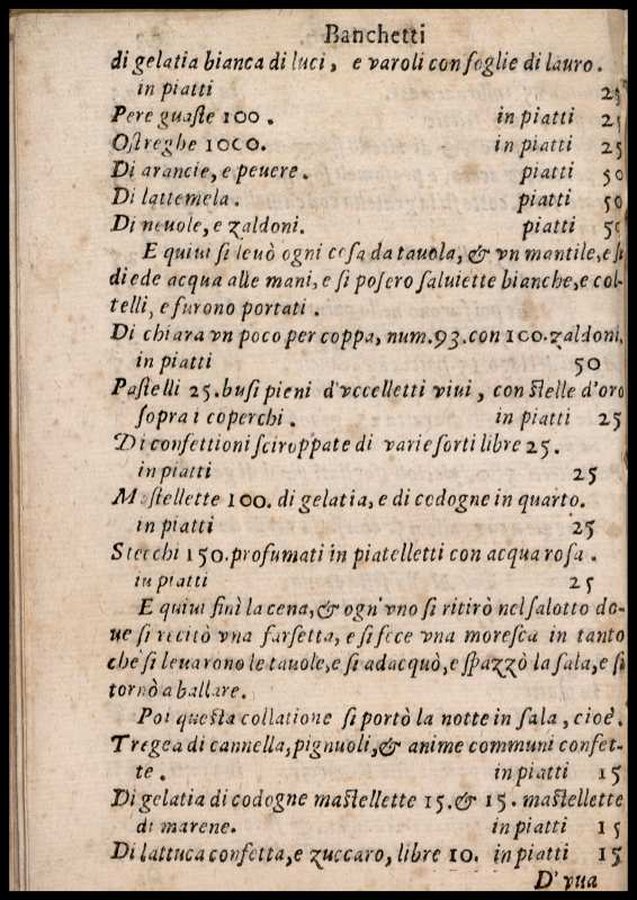 Banchetti
di gelatia bianca di luci, e varoli con foglie di lauro.
in piatti 25
Pere guaste 100. in piatti 25
Ostreghe 1000. in piatti 25
Di arancie, e peuere. piatti 50
Di lattemela. piatti 50
Di neuole, e zaldoni. piatti 50
E quiui si leuò ogni cosa da tauola, & vn mantile, e si
diede acqua alle mani, e si posero saluiette bianche, e col-
telli, e furono portati.
Di chiara vn poco per coppa, num. 93. con 100. zaldoni,
in piatti 50
Pastelli 25. busi pieni d'vccelletti viui, con stelle d'oro
sopra i coperchi. in piatti 25
Di confettioni sciroppate di varie sorti libre 25.
in piatti 25
Mostellette 100. di gelatia, e di codogne in quarto.
in piatti 25
Stecchi 150. profumati in piatelletti con acqua rosa.
in piatti 25
E quiui finì la cena, & ogn'vno si ritirò nel salotto do-
ue si recitò vna farsetta, e si fece vna moresca in tanto
che si leuarono le tauole, e si adacquò, e spazzò la sala, e si
tornò a ballare.
Poi questa collatione si portò la notte in sala, cioè.
Tregea di cannella, pignuoli, & anime communi confet-
te. in piatti 15
Di gelatia di codogne mastellette 15. & 15. mastellette
di marene. in piatti 15
Di lattuca confetta, e zuccaro, libre 10. in piatti 15
D'vua